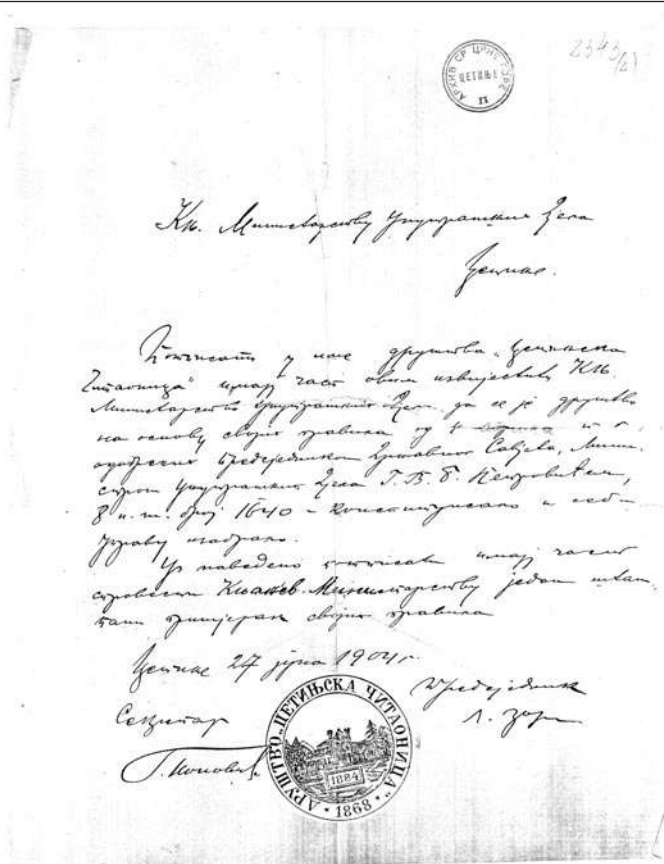 АРХИВ СР ЦРНЕ ГОРЕ
ЦЕТИЊЕ
II
2343/21
Књ. Министарству Унутрашњих Дјела
Цетиње.
Потписати у име друштва „Цетињска
Читаоница“ имају част овим извијестити Књ.
Министарство Унутрашњих Дјела да се је друштво
на основу својих правила од
Предсједника Државног Савјета, Мини-
стра Унутрашњих Дјела Г. Б. Петровића,
8 о. м. број 1640 – конституисало и себи
управу изабрало.
Уз наведено потписати имају част
спровести Књажев. Министарству један штам-
пани примјерак својих правила
Цетиње 27 јуна 1904 г.
Секретар
Предсједник
Л. Зоре
Поповић
ДРУШТВО „ЦЕТИЊСКА ЧИТАОНИЦА“
1884
1868